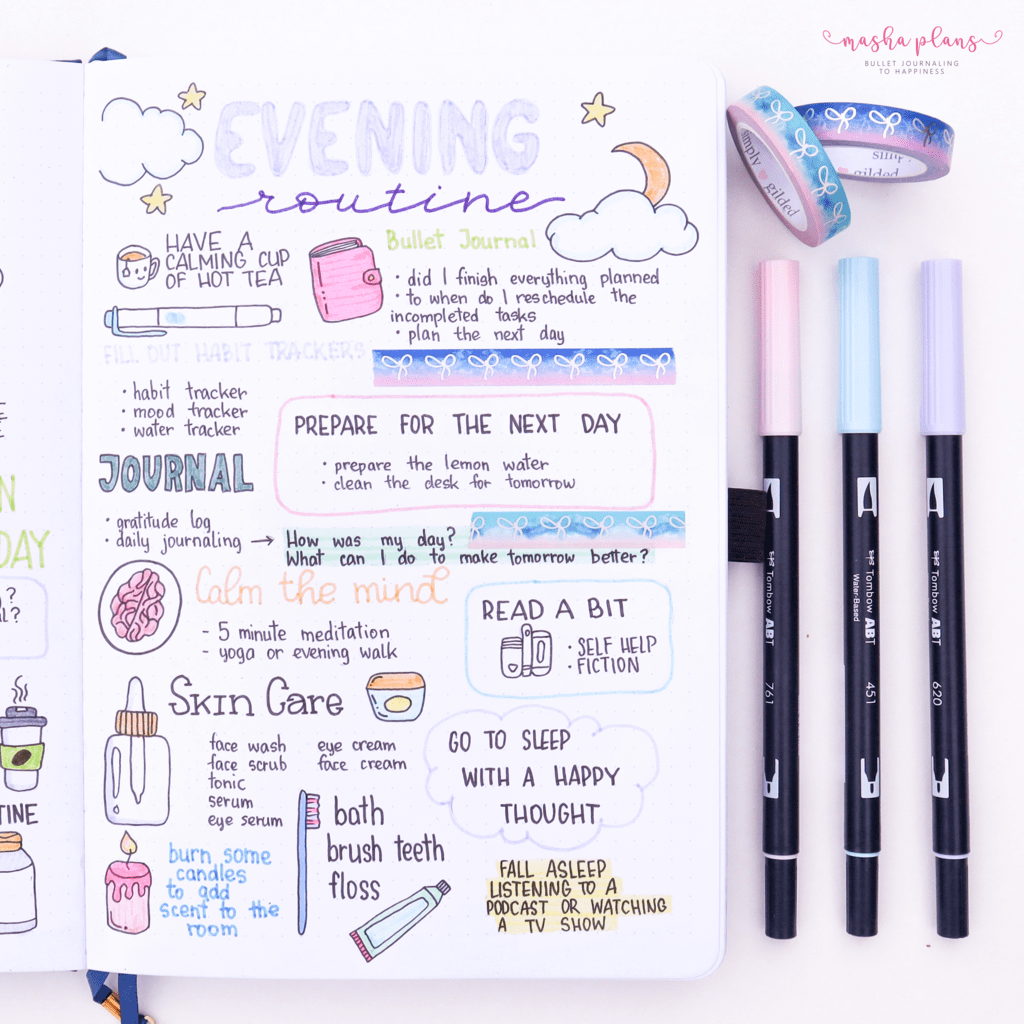 masha plans
BULLET JOURNALING
TO HAPPINESS
EVENING
routine
HAVE A
CALMING CUP
OF HOT TEA
Bullet Journal
• did I finish everything planned
• to when do I reschedule the
incompleted tasks
• plan the next day
FILL OUT HABIT TRACKERS
• habit tracker
• mood tracker
• water tracker
PREPARE FOR THE NEXT DAY
• prepare the lemon water
• clean the desk for tomorrow
JOURNAL
• gratitude log
• daily journaling → How was my day?
What can I do to make tomorrow better?
Calm the mind
- 5 minute meditation
- yoga or evening walk
READ A BIT
• SELF HELP
• FICTION
Skin Care
face wash
face scrub
tonic
serum
eye serum
eye cream
face cream
GO TO SLEEP
WITH A HAPPY
THOUGHT
bath
brush teeth
floss
burn some
candles
to add
scent to the
room
FALL ASLEEP
LISTENING TO A
PODCAST OR WATCHING
A TV SHOW
N
DAY
?
?
TINE
simply gilded
gilded
Tombow ABT
761
Tombow ABT
Water-Based
451
Tombow ABT
620